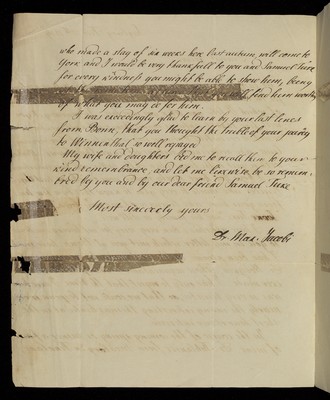 who made a stay of six weeks here last autumn will come to
York and I would be very thankfull to you and Samuel Tuke
for every kindness you might be able to show him, being
find him worthy
of what you may do for him.
I was exceedingly glad to learn by your last lines
from Bonn, that you thought the trouble of your journey
to Winnenthal so well repayed
My wife and daughters bid me to recall them to your
kind remembrance, and let me likewise be so remem-
bred by you and by our dear friend Samuel Tuke.
Most sincerely yours
Dr Max. Jacobi